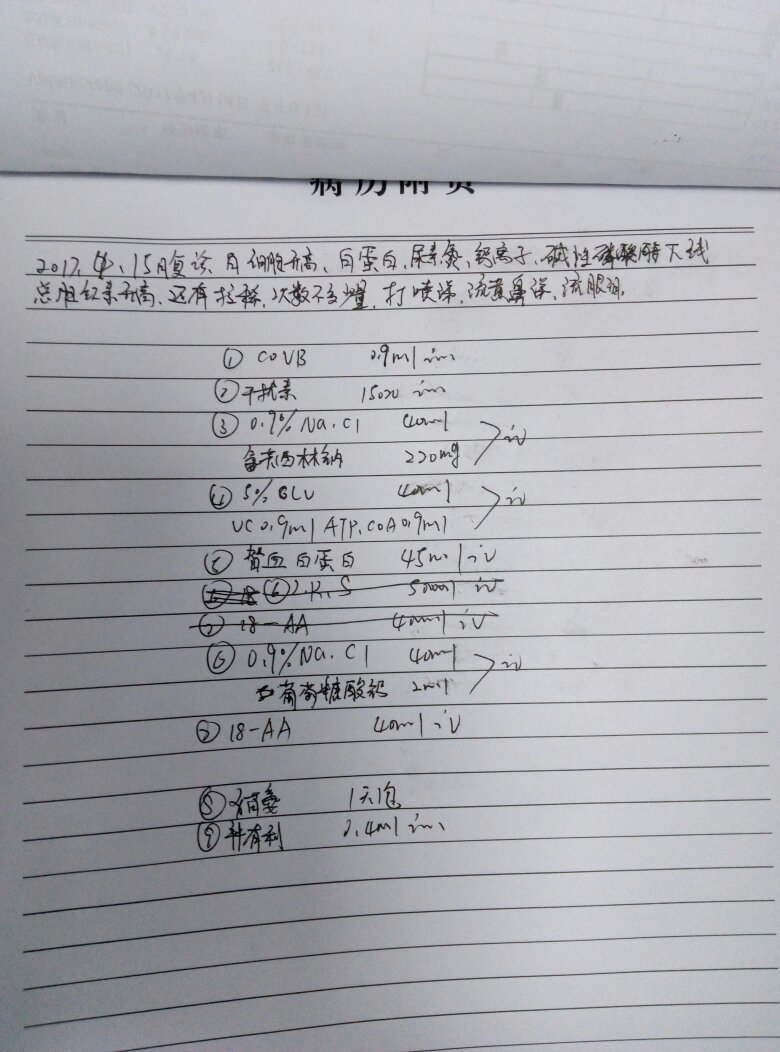 病历附页
2017.4.15月复诊 白细胞升高、白蛋白、尿素氮、钙离子、碱性磷酸酶下线
总胆红素升高、还有拉稀、次数不多少量、打喷涕、流黄鼻涕、流眼泪.
① COVB 0.9ml im
②干扰素 im
③ 0.9% Na.Cl 40ml iv
西林钠 220mg
④ 5% GLU 40ml iv
VC 0.9ml ATP.COA 0.9ml
⑤ 血白蛋白 45ml iv
⑥ L.R.S 500ml iv
⑦ 18-AA 40ml iv
⑥ 0.9% Na.Cl 40ml iv
葡萄糖酸钙 2ml
⑦ 18-AA 40ml iv
⑧ 1天1包
⑨ 2.4ml im